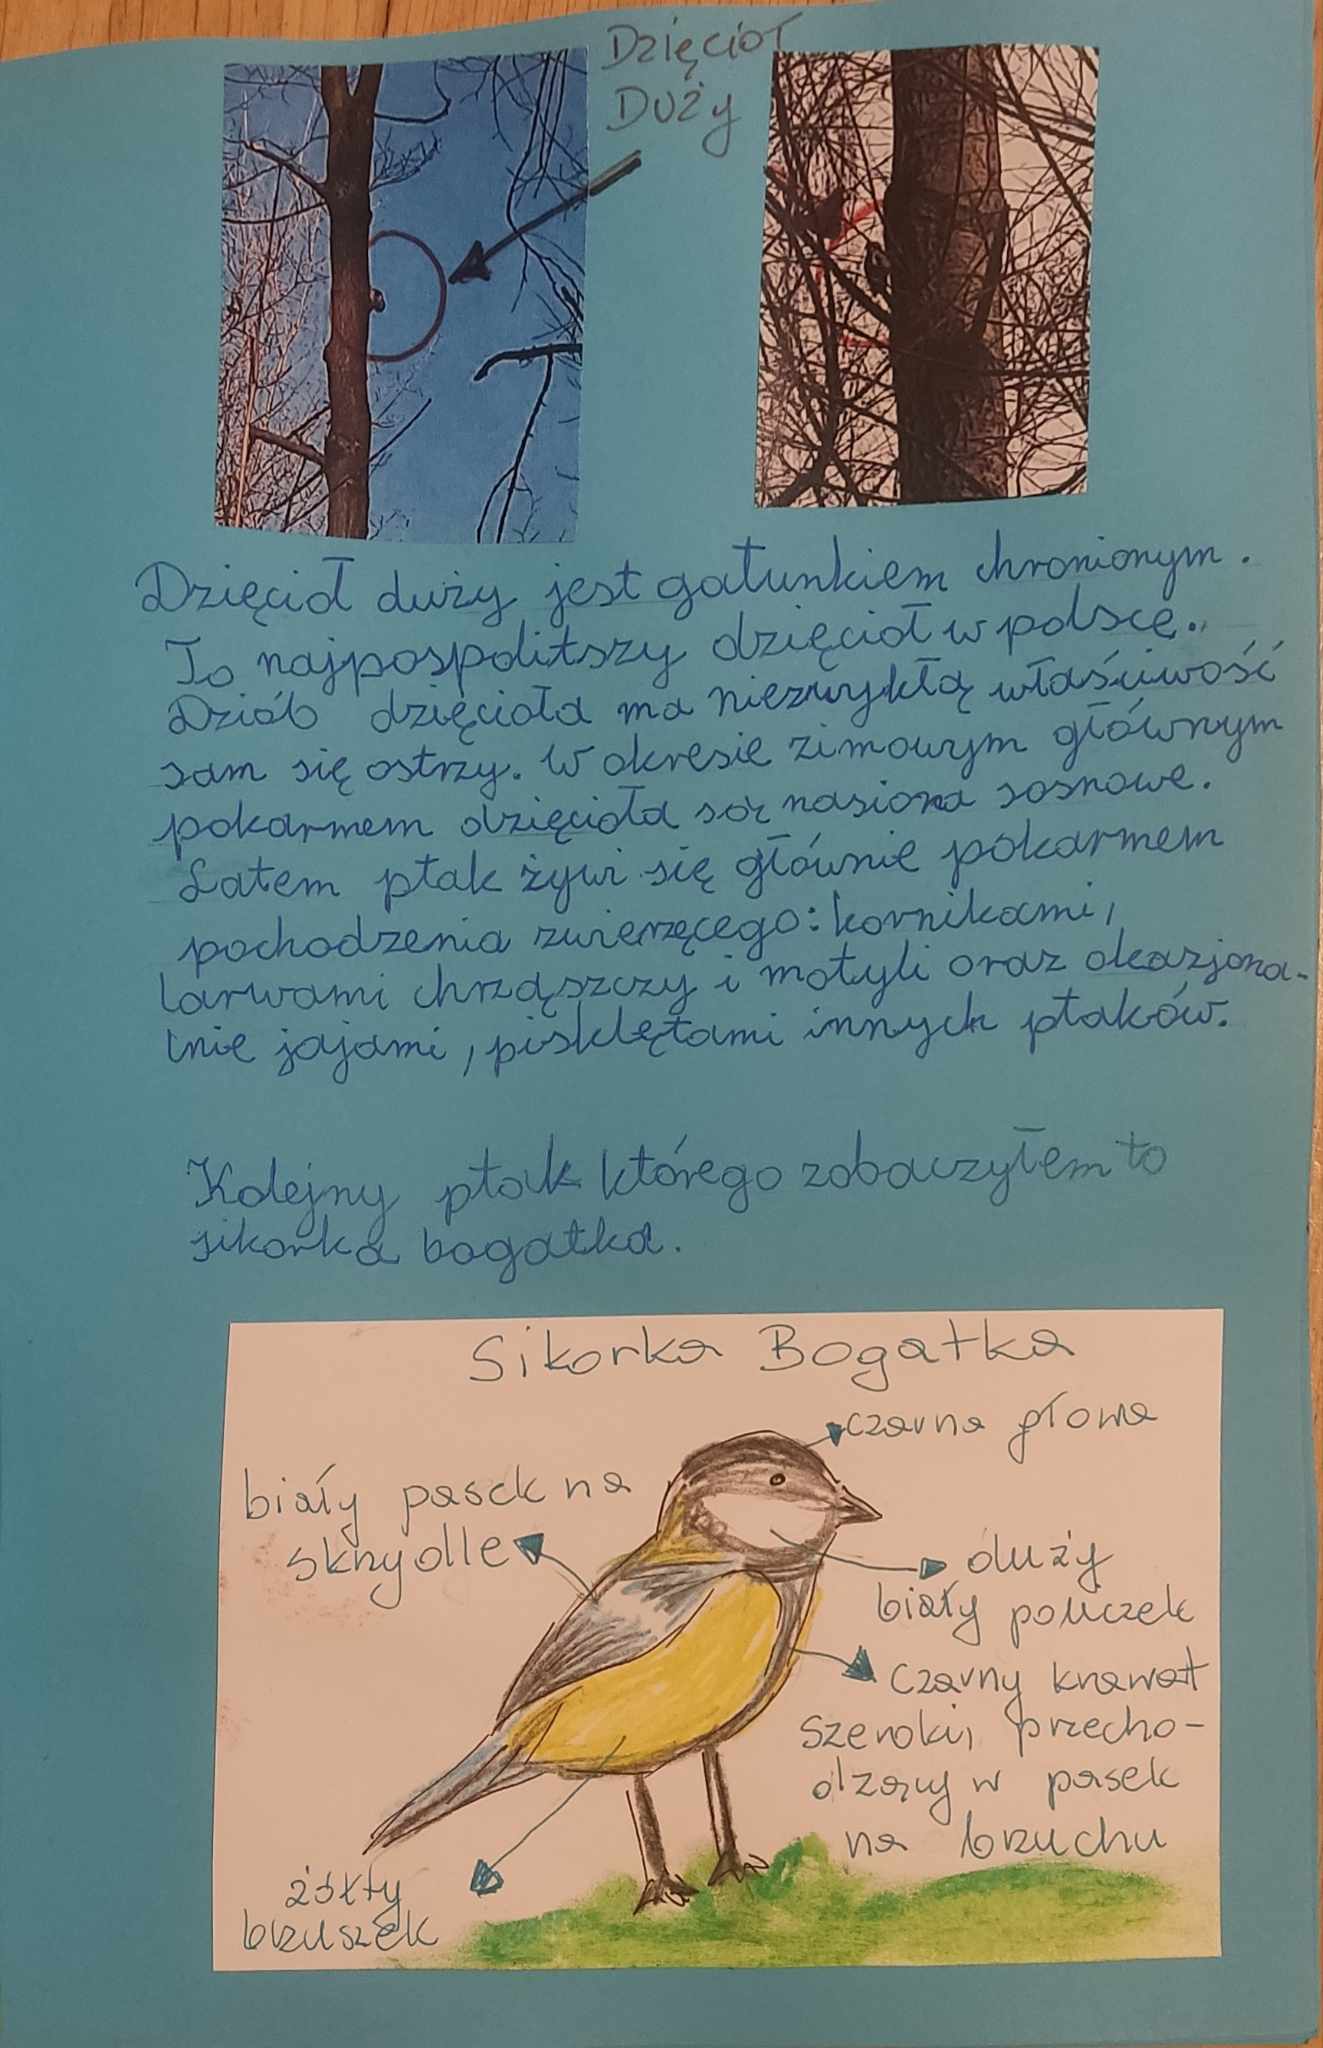 Dzięcioł
Duży
Dzięcioł duży jest gatunkiem chronionym.
To najpospolitszy dzięcioł w polsce.
Dziób dzięcioła ma niezwykłą właściwość
sam się ostrzy. W okresie zimowym głównym
pokarmem dzięcioła są nasiona sosnowe.
Latem ptak żywi się głównie pokarmem
pochodzenia zwierzęcego: kornikami,
larwami chrząszczy i motyli oraz okazjona-
lnie jajami, pisklętami innych ptaków.
Kolejny ptak którego zobaczyłem to
sikorka bogatka.
Sikorka Bogatka
czarna głowa
biały pasek na
skrzydle
duży
biały policzek
czarny krawat
szeroki, przecho-
dzący w pasek
na brzuchu
żółty
brzuszek